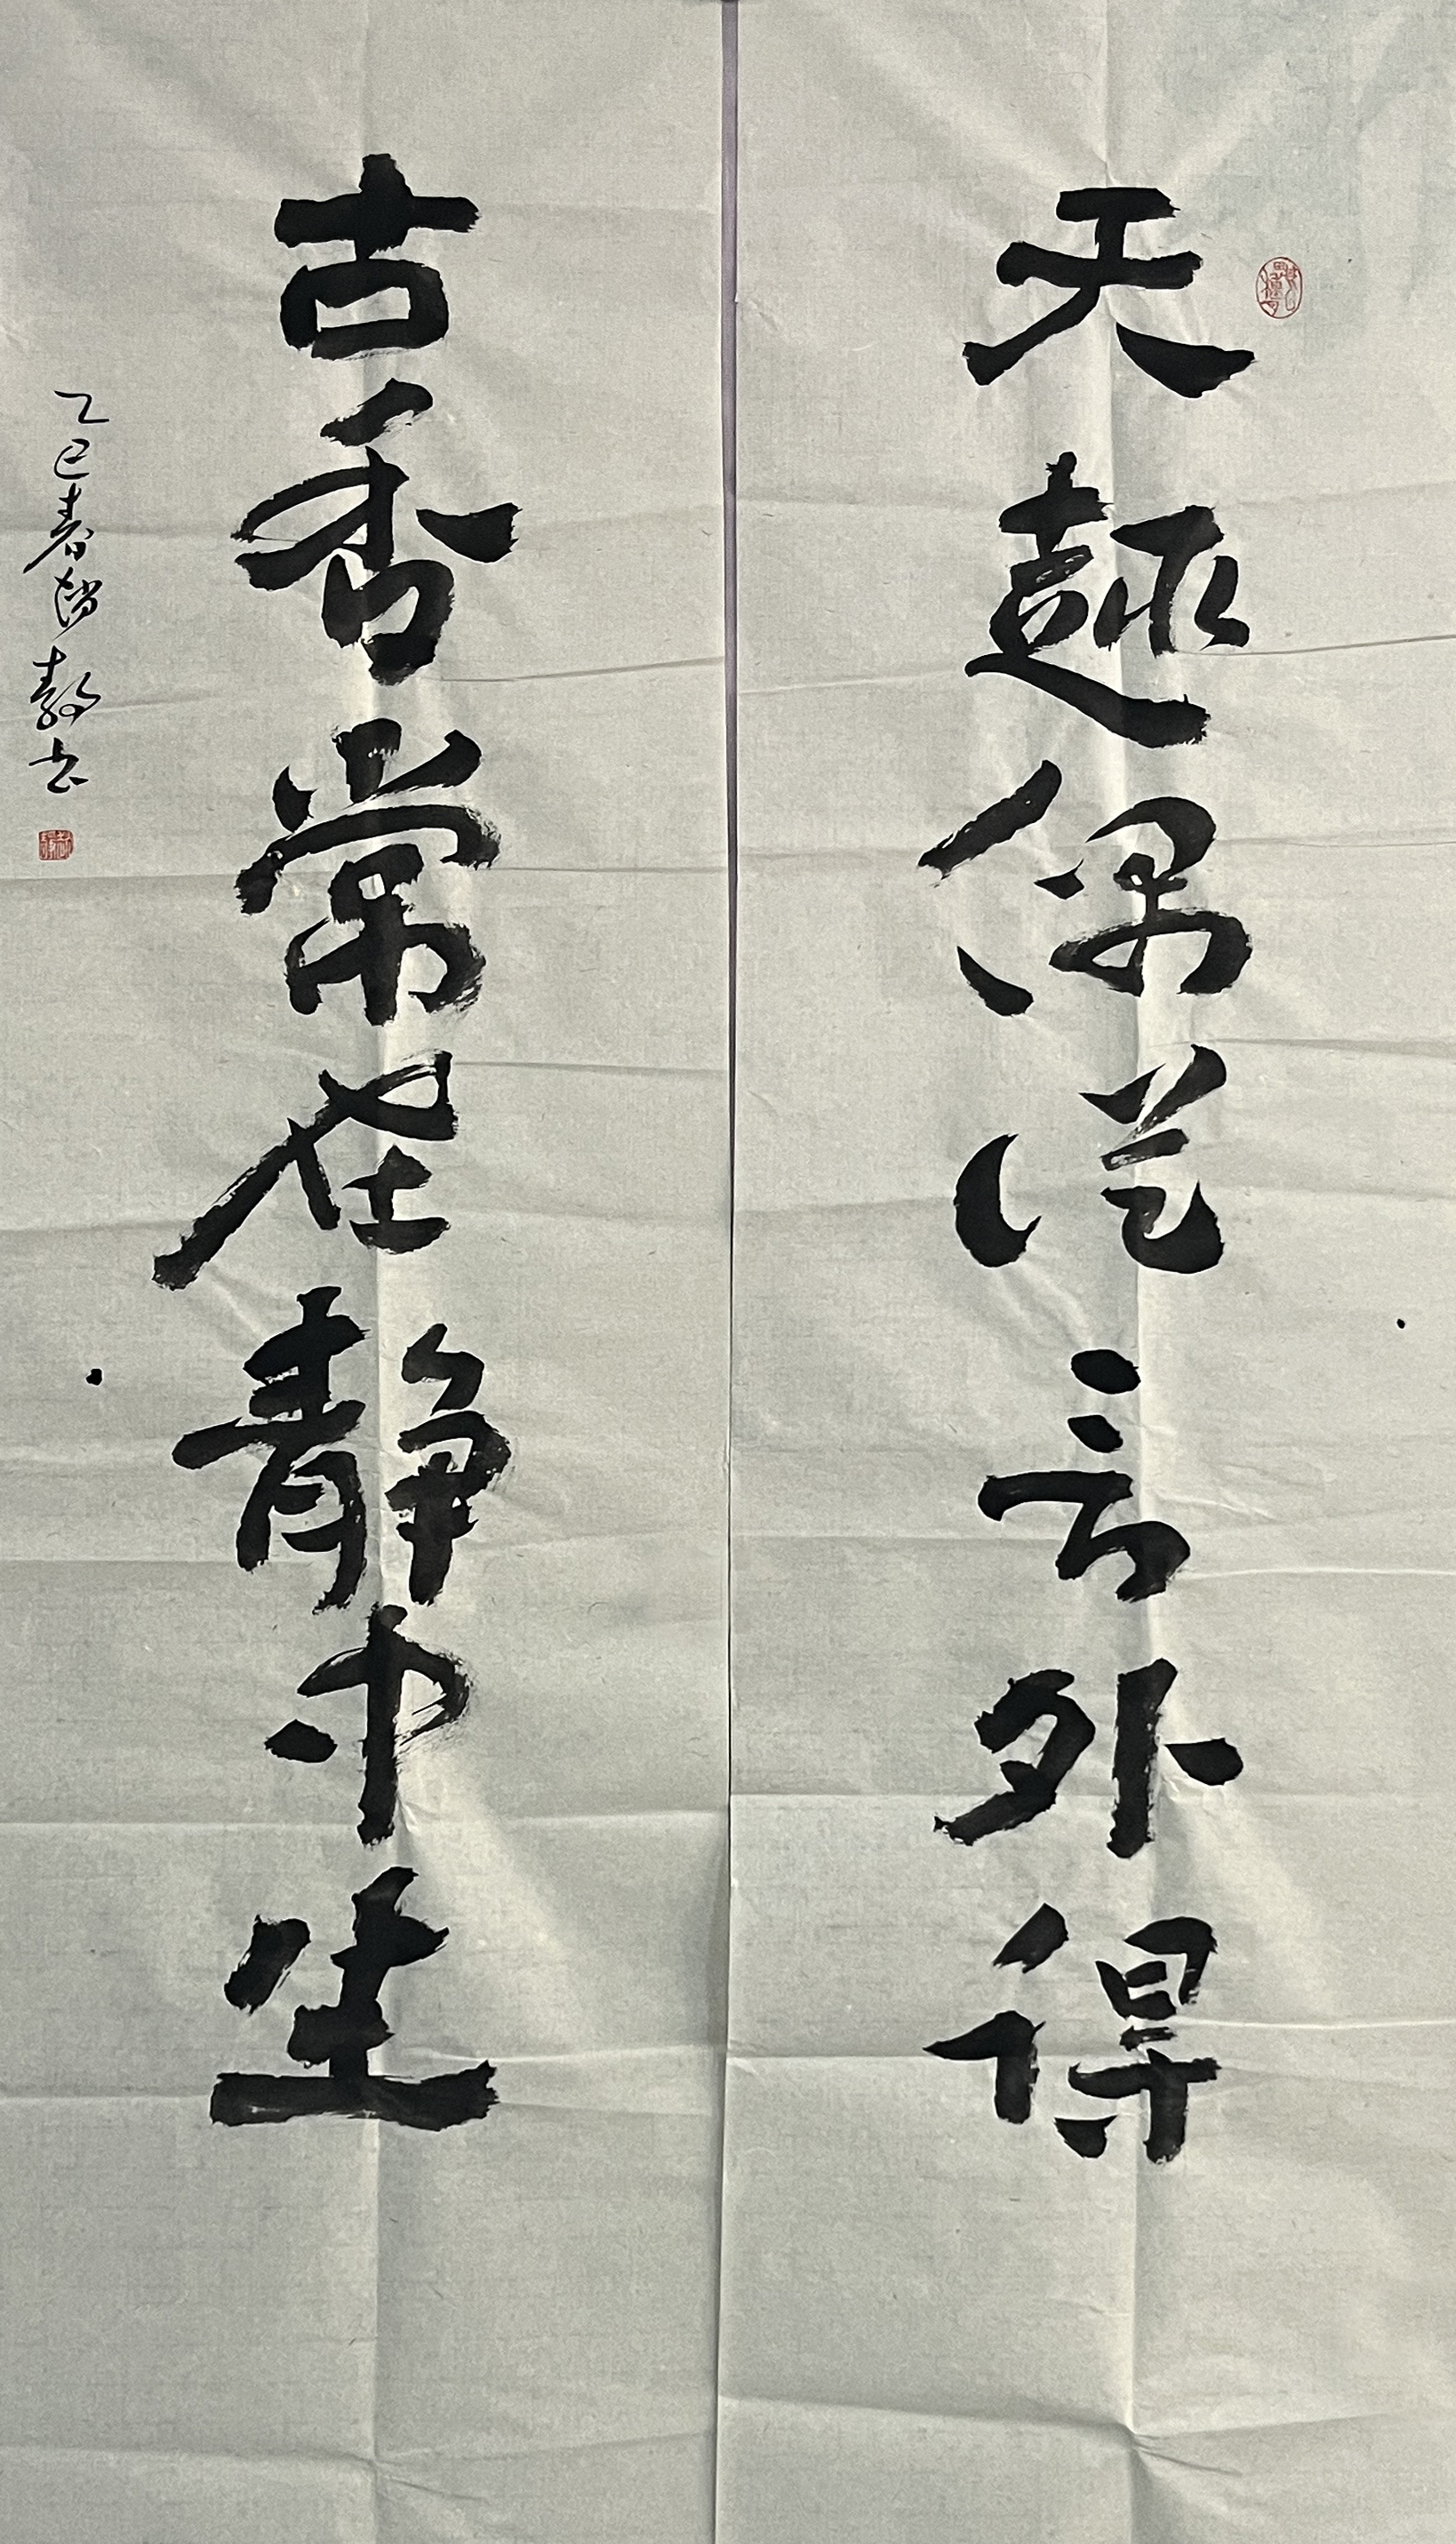 天趣偶從言外得
古香常在靜中生
乙巳春 書